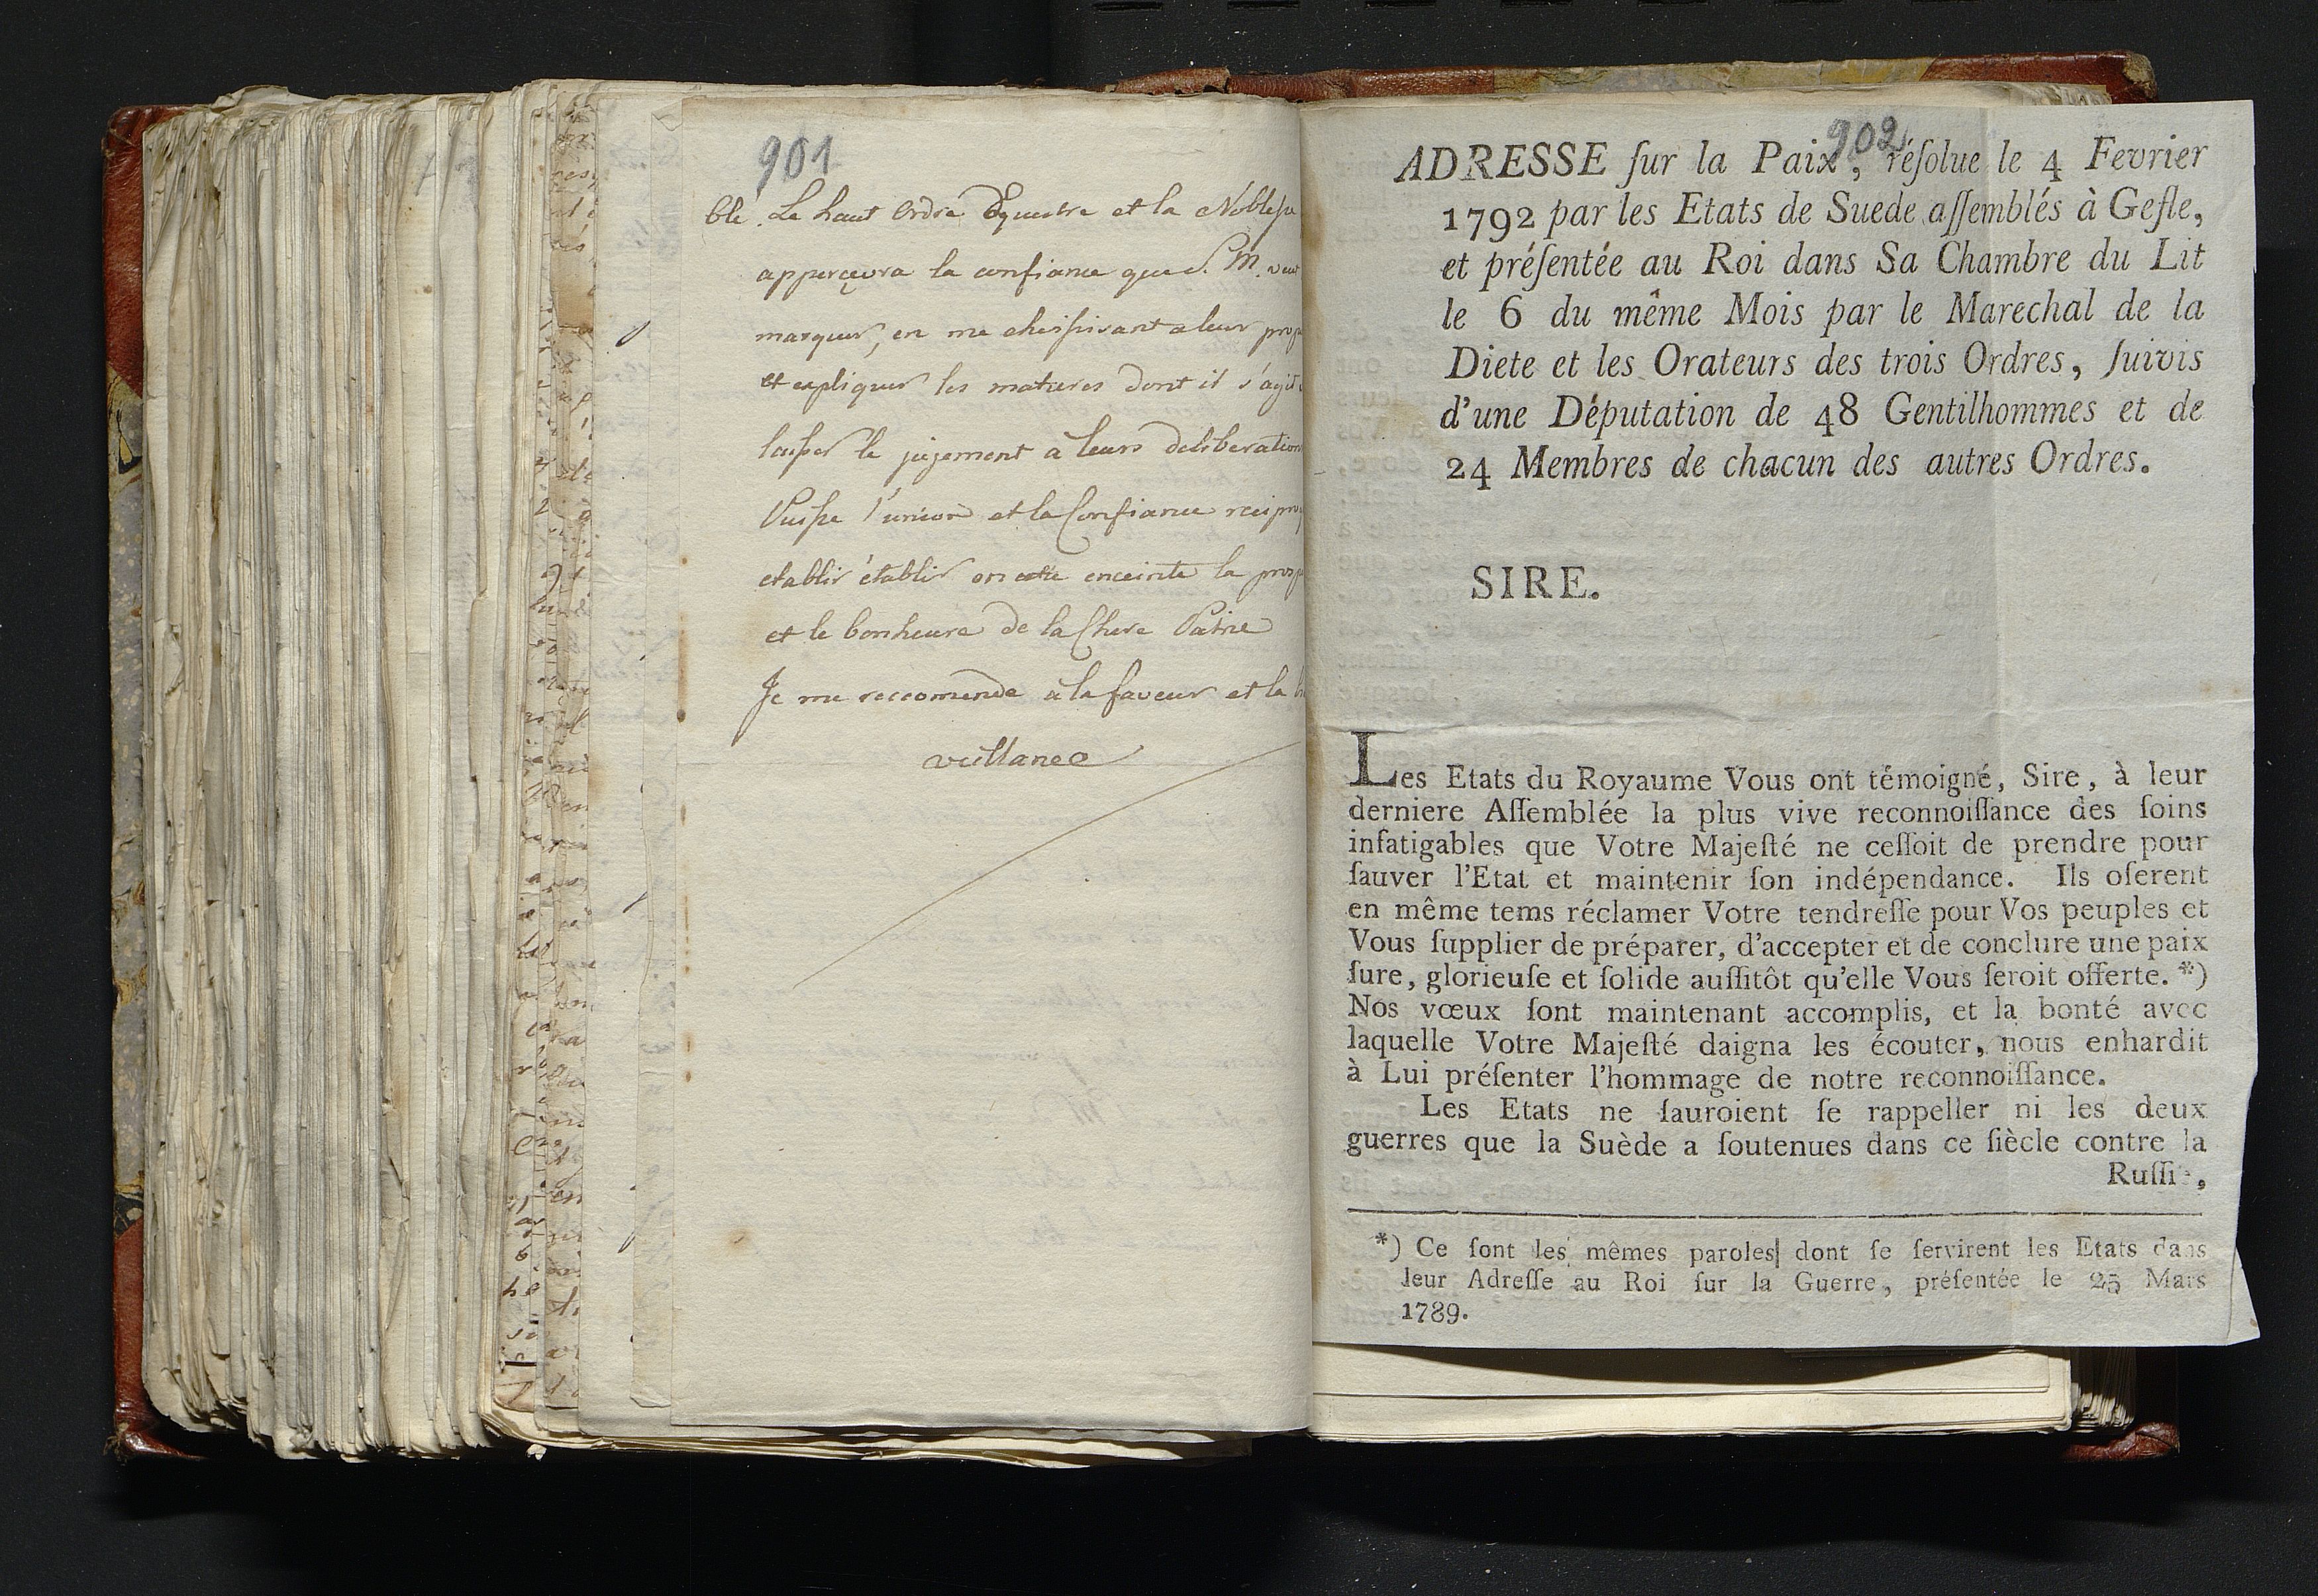 901
blé. Le haut ordre Equestre et la Noblesse
apperçevra la confiance que S. M. veut
marquer, en me choisissant a leur
et expliquer les matieres dont il s'agit
laisser le jugement a leurs deliberations
Puisse l'union et la Confiance
etablir établir en cette enceinte la
et le bonheure de la Chere Patrie
Je me reccomende a la faveur et la
veillance
902
ADRESSE ſur la Paix, réſolue le 4 Fevrier
1792 par les Etats de Suede aſſemblés à Gefle,
et préſentée au Roi dans Sa Chambre du Lit
le 6 du même Mois par le Marechal de la
Diete et les Orateurs des trois Ordres, ſuivis
d'une Députation de 48 Gentilhommes et de
24 Membres de chacun des autres Ordres.
SIRE.
Les Etats du Royaume Vous ont témoigné, Sire, à leur
derniere Aſſemblée la plus vive reconnoiſſance des ſoins
infatigables que Votre Majeſté ne ceſſoit de prendre pour
ſauver l'Etat et maintenir ſon indépendance. Ils oſerent
en même tems réclamer Votre tendreſſe pour Vos peuples et
Vous ſupplier de préparer, d'accepter et de conclure une paix
ſure, glorieuſe et ſolide auſſitôt qu'elle Vous ſeroit offerte. *)
Nos vœux ſont maintenant accomplis, et la bonté avec
laquelle Votre Majeſté daigna les écouter, nous enhardit
à Lui préſenter l'hommage de notre reconnoiſſance.
Les Etats ne ſauroient ſe rappeller ni les deux
guerres que la Suède a ſoutenues dans ce ſiècle contre la
Ruſſie,
*) Ce ſont les mêmes paroles dont ſe ſervirent les Etats dans
leur Adreſſe au Roi ſur la Guerre, préſentée le 25 Mars
1789.